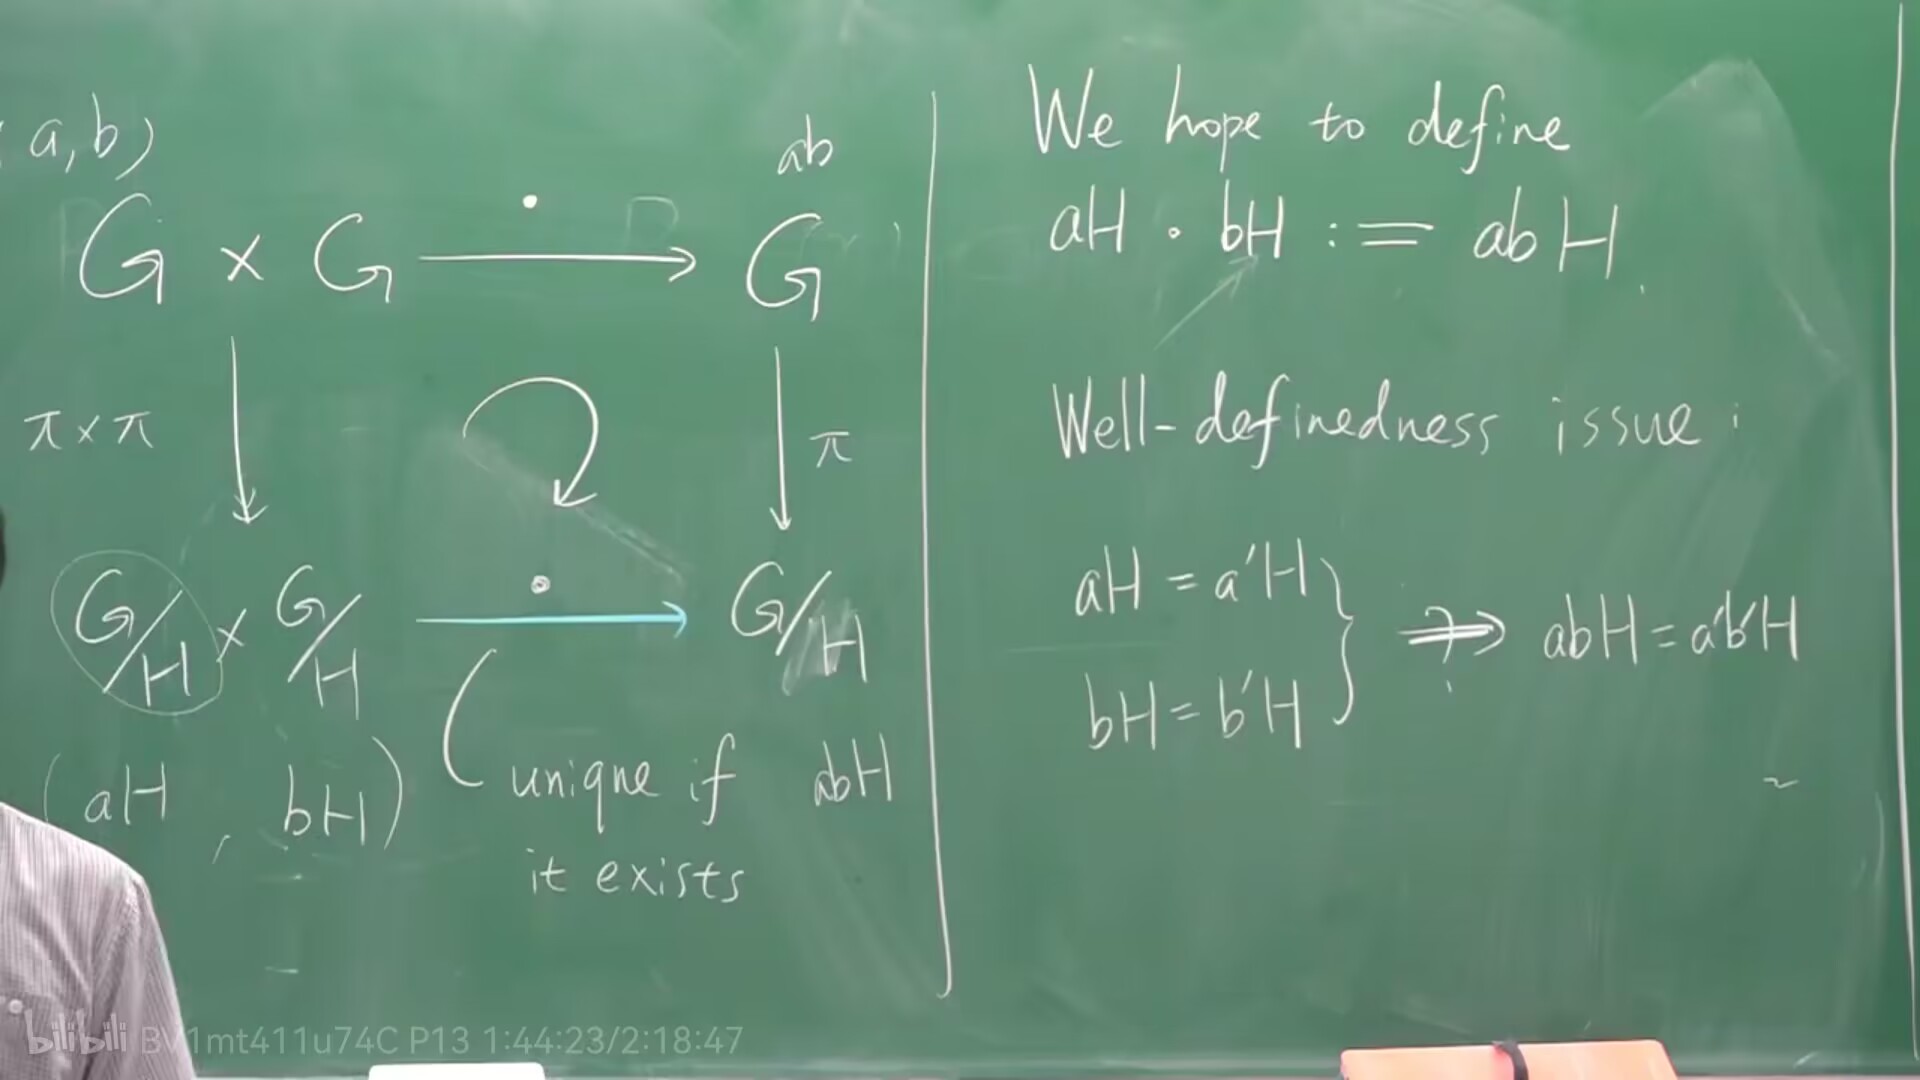 (a,b)
ab
G × G ⟶ G
π×π
π
G/H × G/H ⟶ G/H
(aH , bH)
abH
unique if
it exists
We hope to define
aH · bH := abH
Well-definedness issue:
aH = a'H
bH = b'H
} ⇒ ? abH = a'b'H
bilibili BV1mt411u74C P13 1:44:23/2:18:47